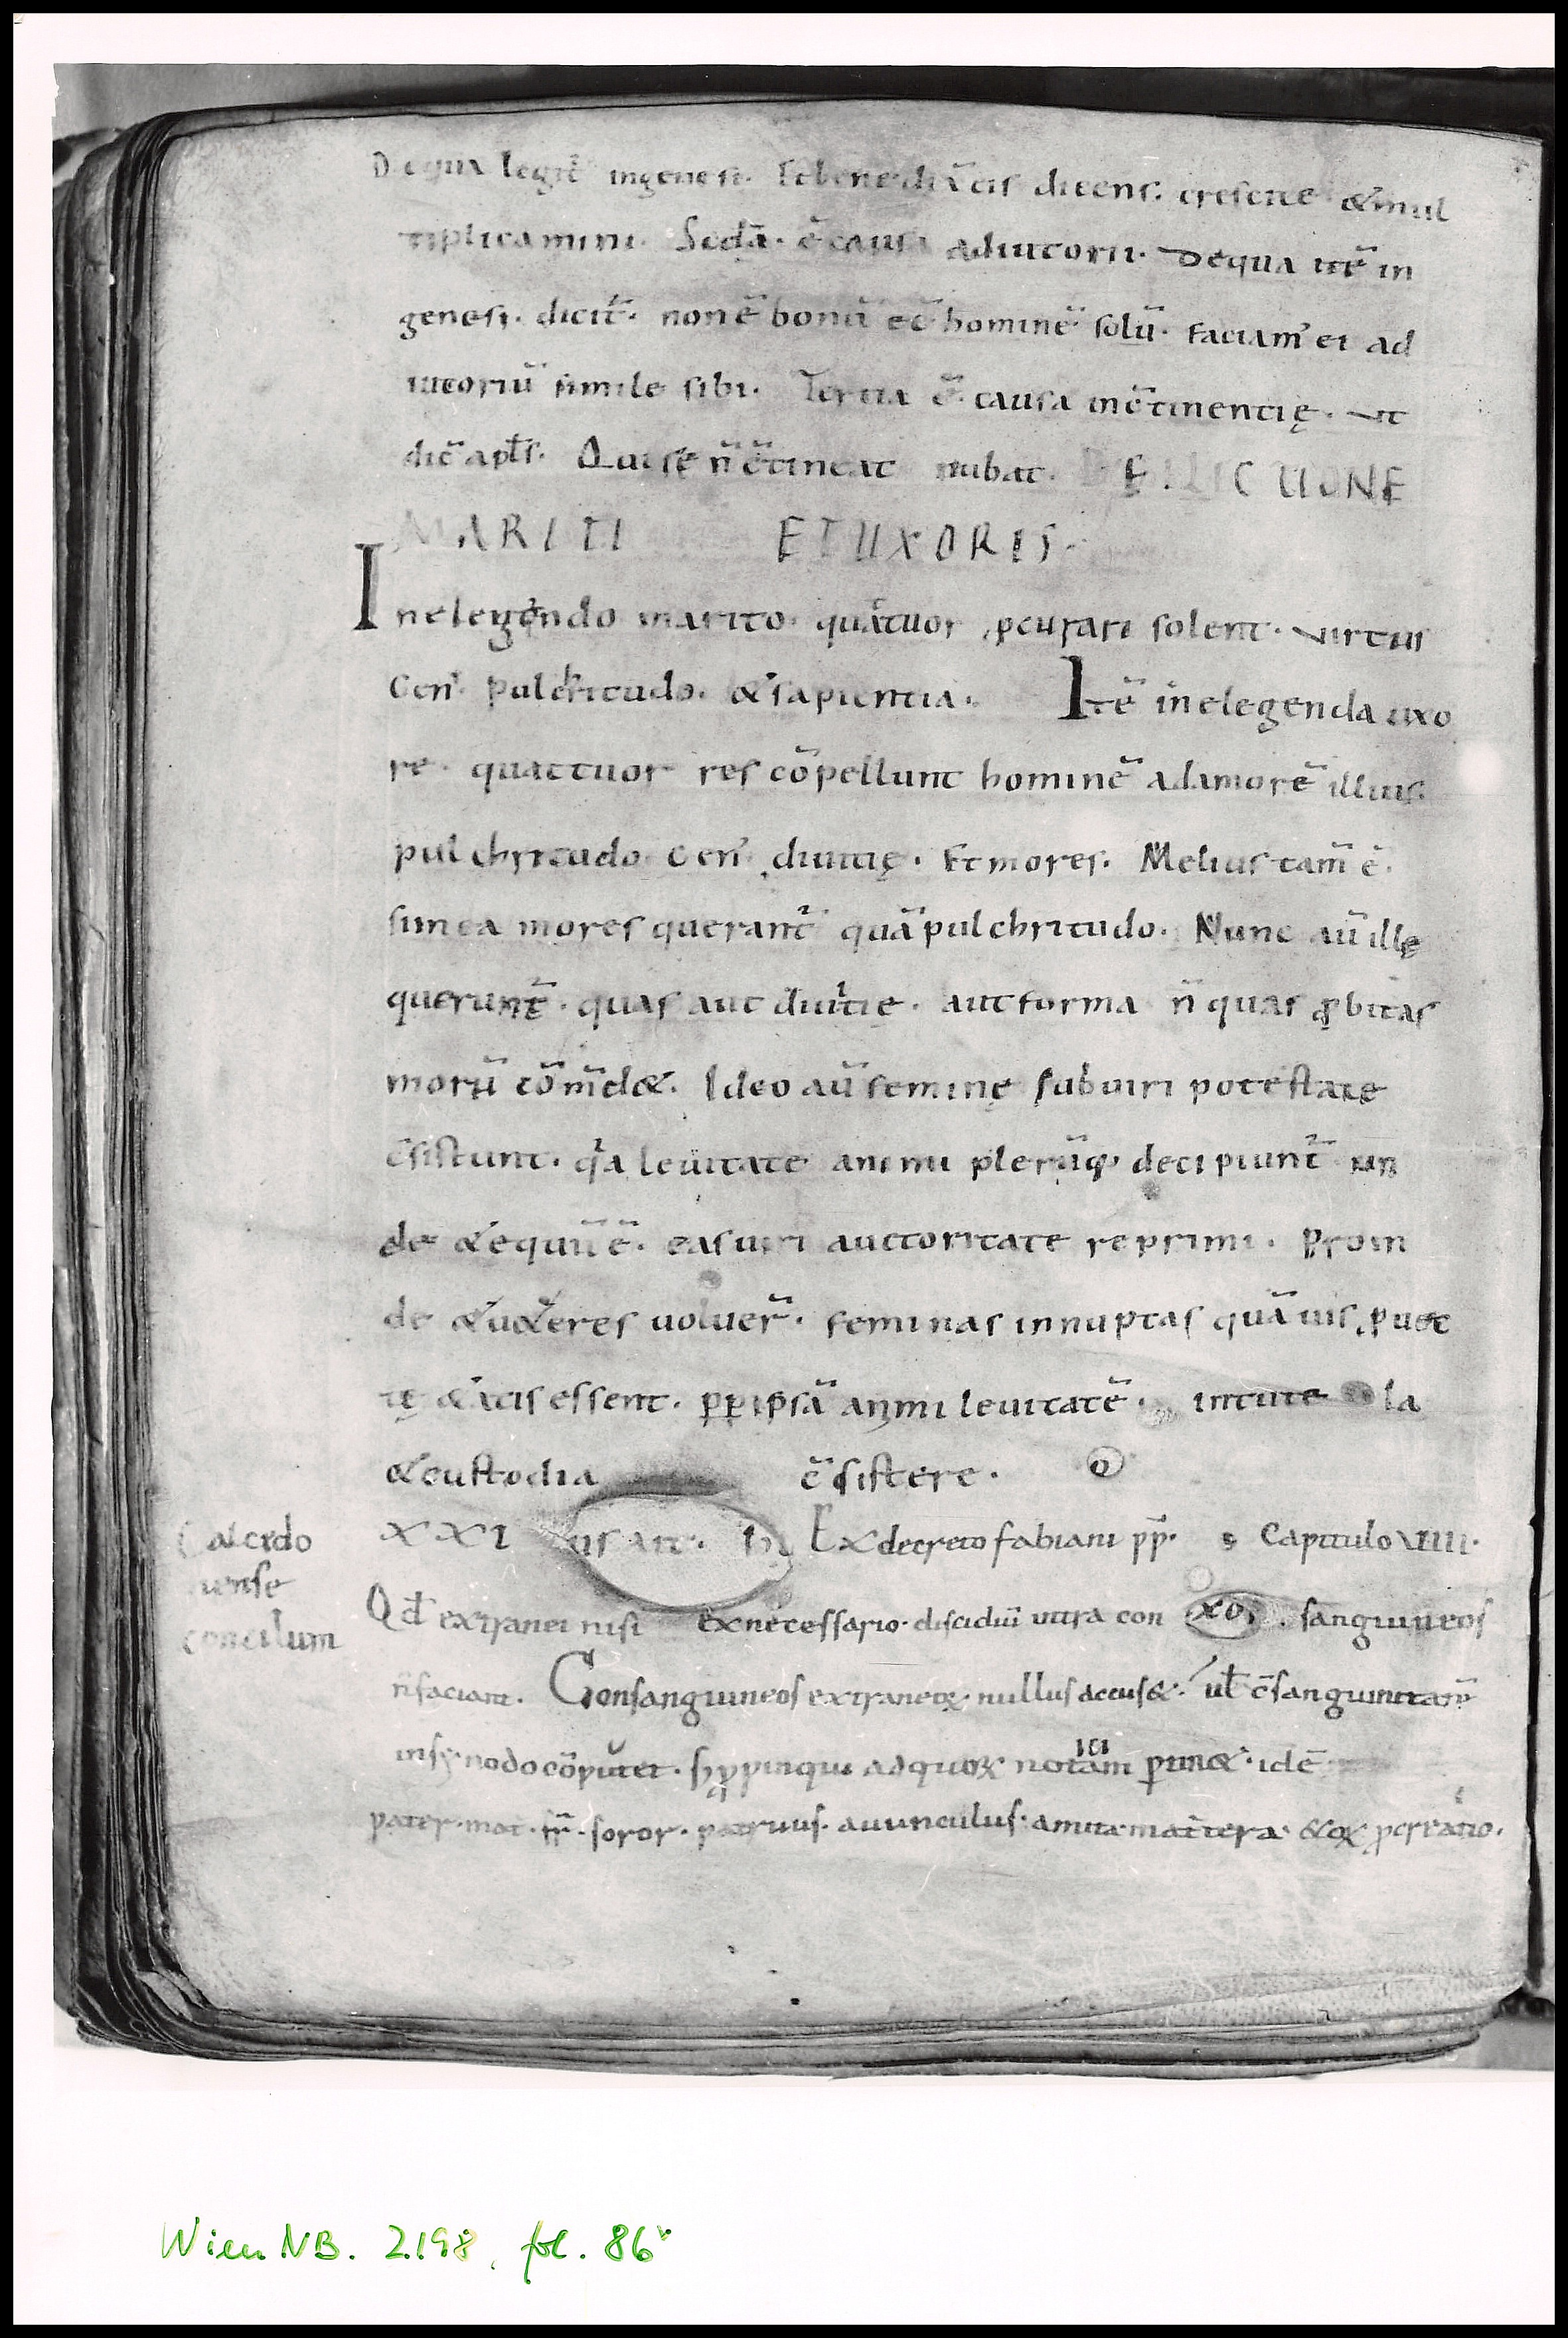 Dequa legit̄ ingenesi. Et benedix̄ eis dicens. crescite &mul
tiplicamini. Secd̄a. ē causa adiutorii. Dequa itē in
genesi. dicit̄. non ē bonū eē hominē solū. faciam' ei ad
iutoriū simile sibi. Tertia ē. causa inc̄tinentię. Ut
dic̄ apl̄s. Qui se n̄ c̄tineat nubat. DE ELECTIONE
MARITI ET UXORIS.
Inelegendo marito. quattuor p̱curari solent. virtus
Gen'. pulchritudo. & sapientia. Itē inelegenda uxo
re. quattuor res cōpellunt hominē adamorē illius.
pulchritudo Gen' diuitię. Et mores. Melius tam̄ ē.
sin ea mores querant̄ quā pulchritudo. Nunc aū illę
querunt̄. quas aut diuitię. aut forma n̄ quas ꝓbitas
morū cōm̄d&. Ideo aū feminę sub uiri potestate
c̄sistunt. qa leuitate animi plerūq; decipiunt̄ un
de & equū ē. eas uiri auctoritate reprimi. Proin
de & u&eres uoluer̄. feminas innuptas quāuis ꝑuec
tę &atis essent. ꝓꝑ ipsā animi leuitatē. in tute la
& custodia c̄sistere.
XXI Ex decreto fabiani pp̄. Capitulo VIIII.
Calcedo
nense
concilium
Qd̄ extranei nisi ex necessario. discidiū intra con XOR. sanguineos
n̄ faciant. Consanguineos extraneoꝝ. nullus accus&. ul̄ c̄sanguinitatē
in synodo cōputet. s; ꝓpinqui ad quoꝝ notitiam ꝑtin&. idē
pater. mat̄. fr̄. soror. patruus. auunculus. amita matertera & eoꝝ ꝓcreatio.
Wien NB. 2198, fol. 86v